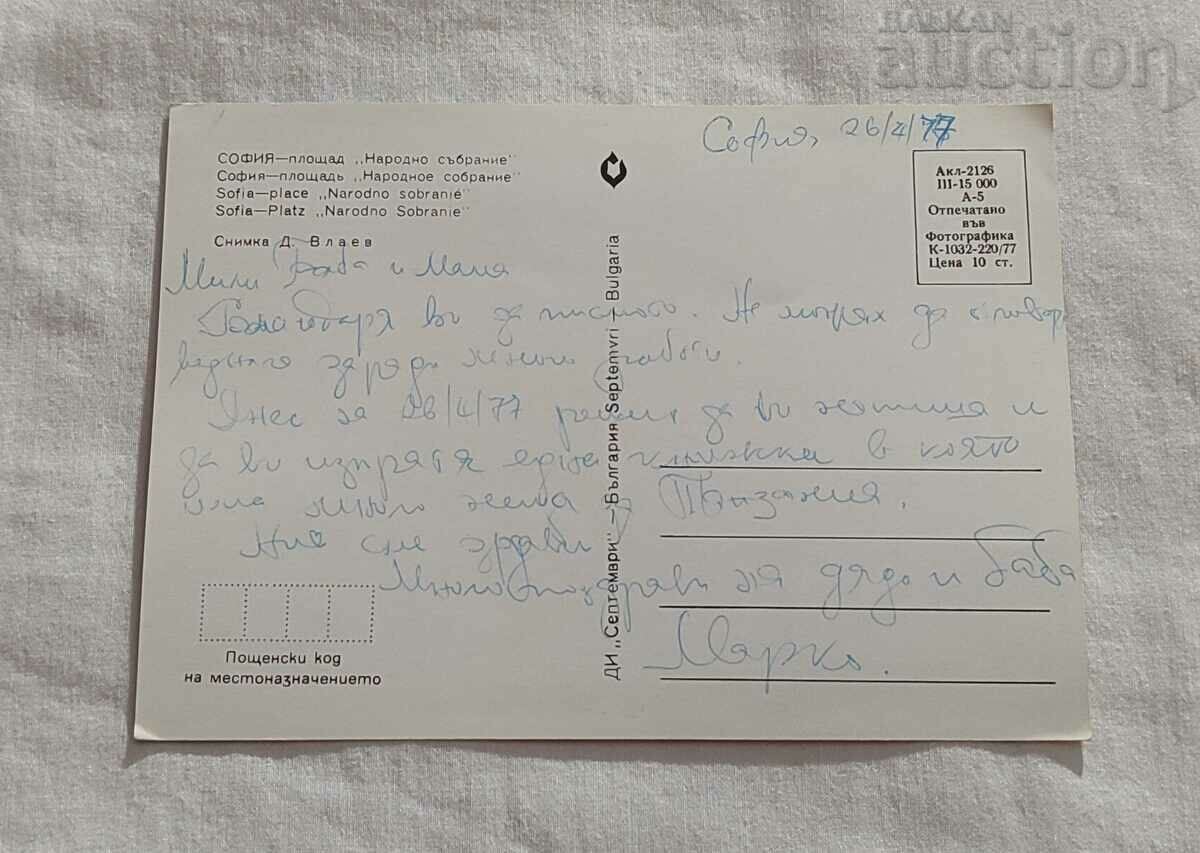 BALKAN
auction
София, 26/4/77
СОФИЯ—площад „Народно събрание"
София—площадь „Народное собрание"
Sofia—place „Narodno sobranié"
Sofia—Platz „Narodno Sobranie"
Снимка Д. Влаев
Акл-2126
III-15 000
А-5
Отпечатано
във
Фотографика
К-1032-220/77
Цена 10 ст.
Мили и
Благодаря ви за писмото. Не можах да отговор
веднага заради много работи.
Днес на 26/4/77 реших да ви и
да ви изпратя една книжка в която
има много неща за Танзания.
Ние сме здрави
Много поздрави на дядо и баба
Марко.
ДИ „Септември" — България Septemvri Bulgaria
Пощенски код
на местоназначението